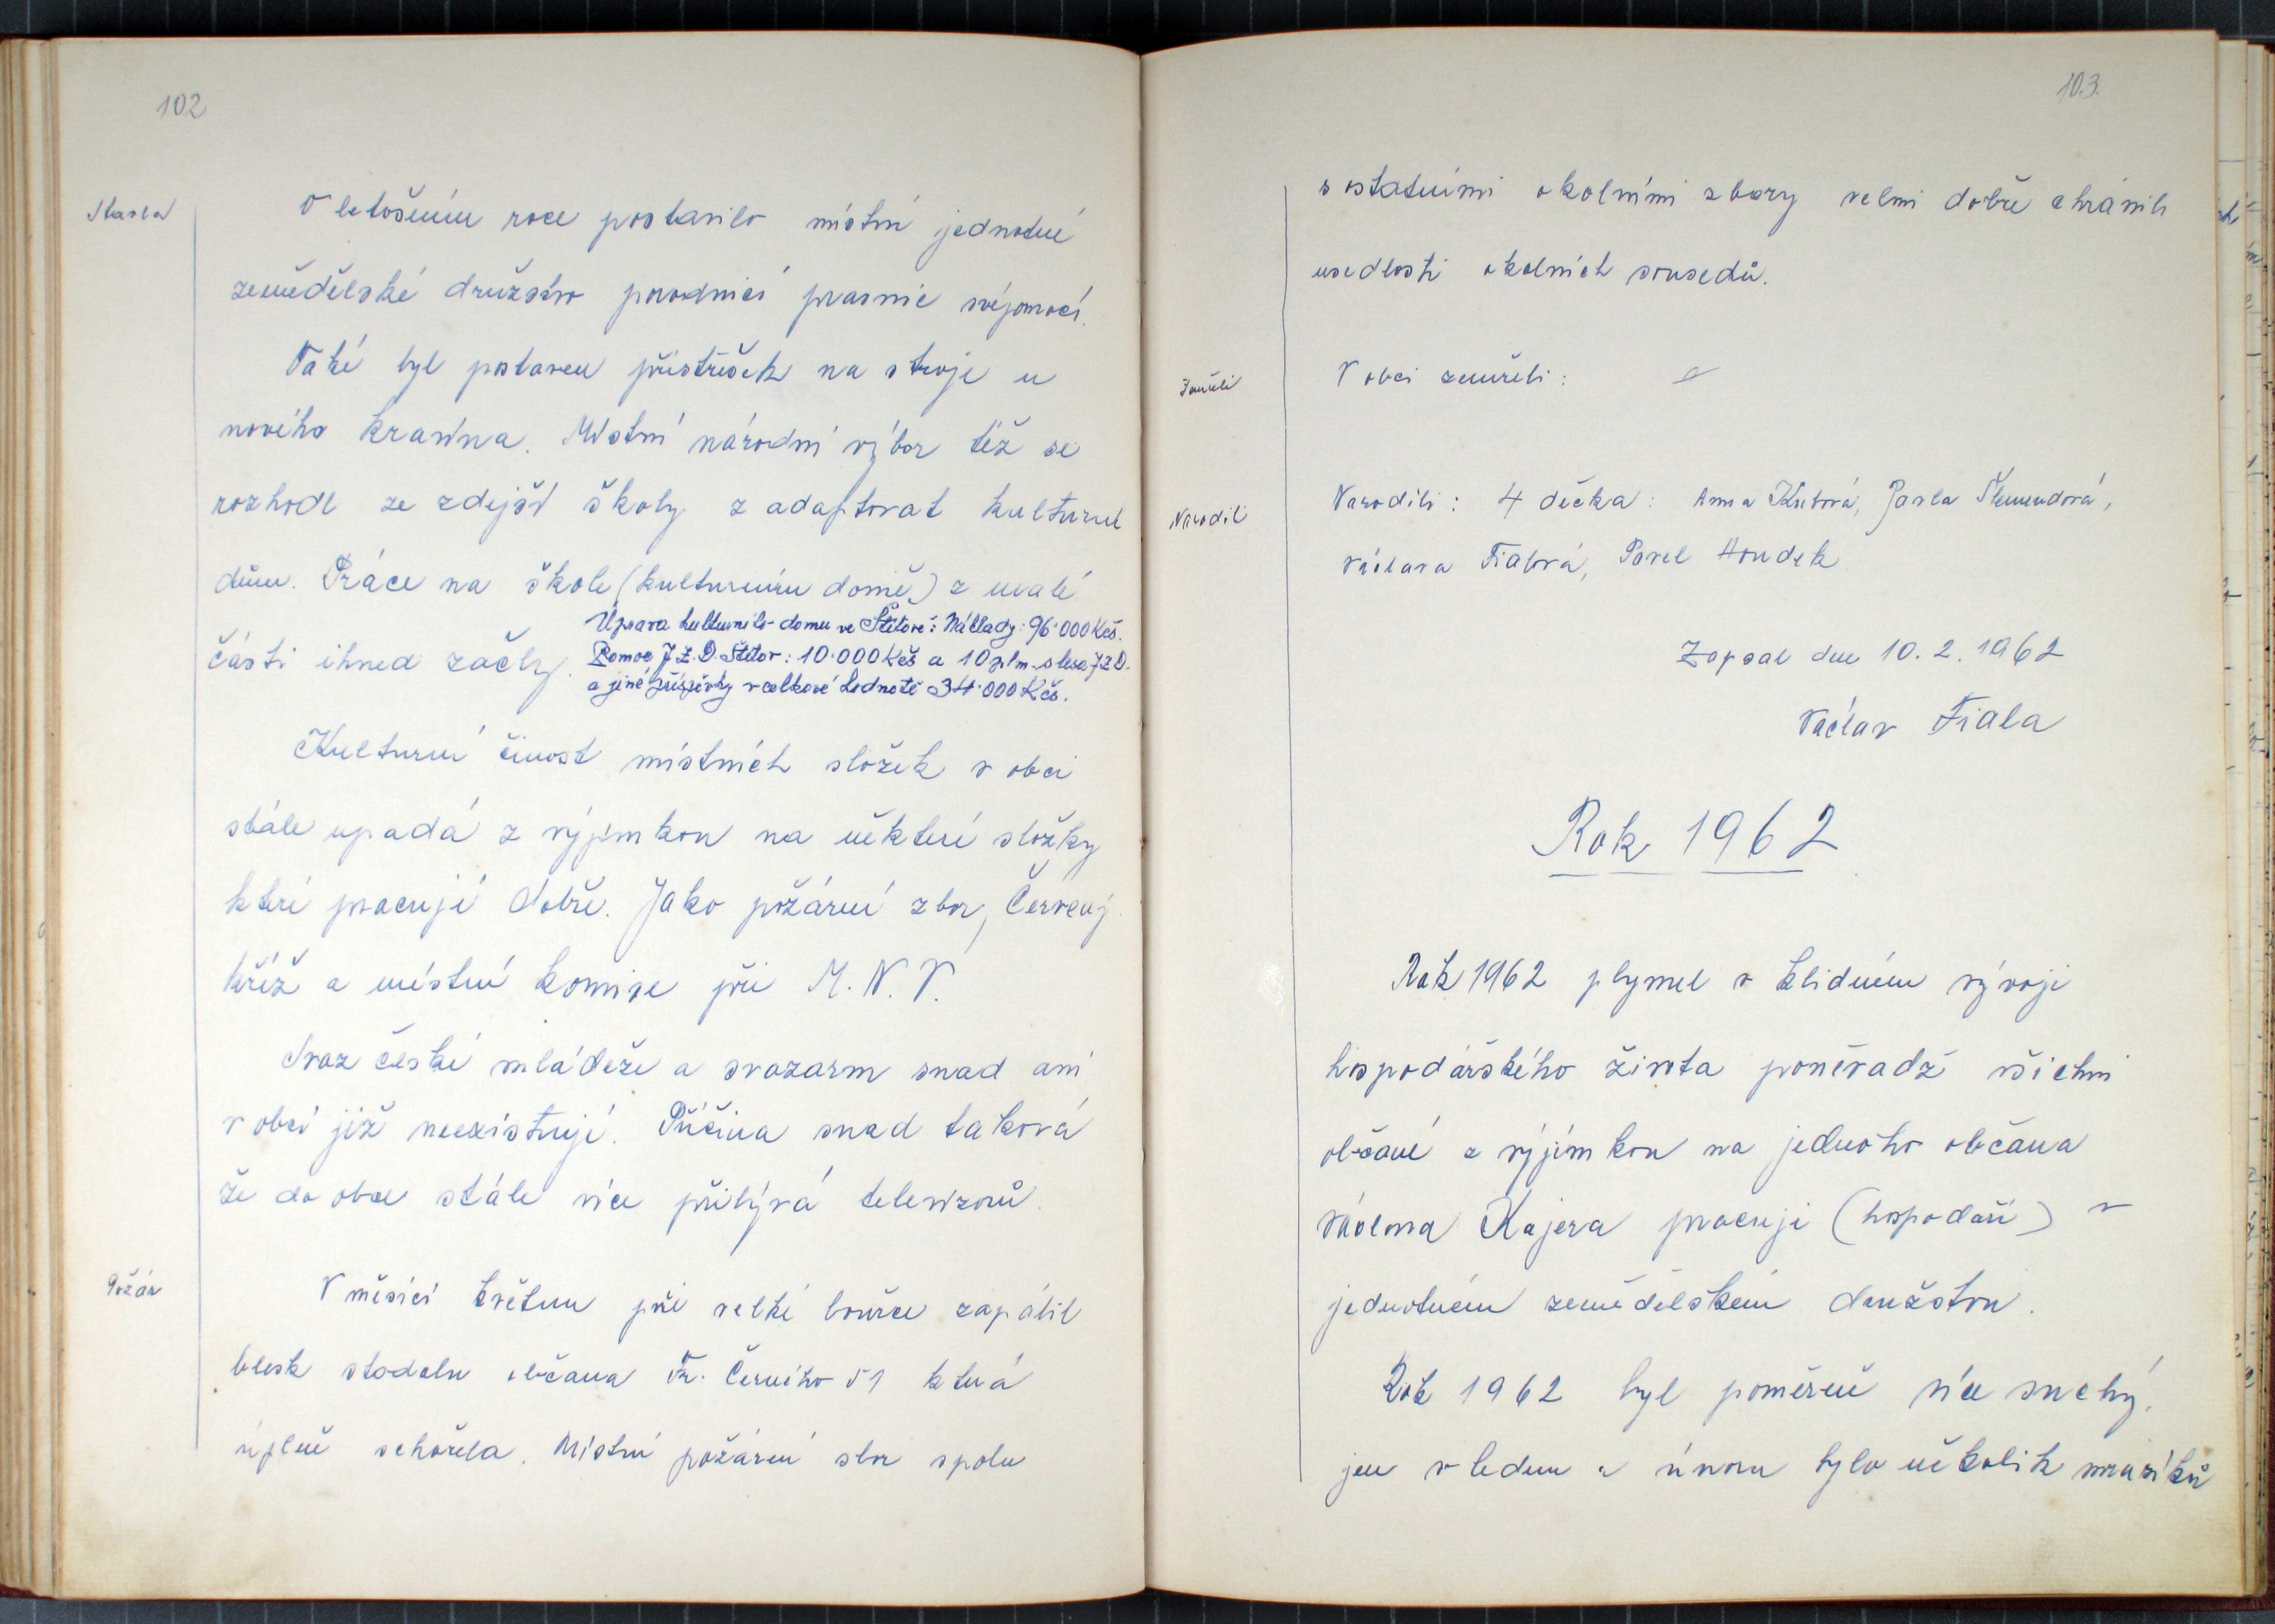 102
Stavba
V letošním roce postavilo místní jednotné
zemědělské družstvo porodnici prasnic svépomocí.
Také byl postaven přístřešek na stroje u
nového kravína. Místní národní výbor též se
rozhodl ze zdejší školy z adaptovat kulturní
dům. Práce na škole (kulturním domě) z malé
části ihned začly.
Úprava kulturního domu ve Štítově: Náklady: 96.000 Kčs.
Pomoc J.Z.D. Štítov: 10.000 Kčs a 10 plm. z lesa JZD.
a jiné příspěvky v celkové hodnotě 34.000 Kčs.
Kulturní činost místních složek v obci
stále upadá z výjimkou na některé složky
které pracují dobře. Jako požární zbor, Červený
kříž a místní komise při M.N.V.
Svaz české mládeže a svazarm snad ani
v obci již neexistují. Příčina snad taková
že do obce stále více přibývá televizorů.
Požár
V měsíci květnu při velké bouřce zapálil
blesk stodolu občana Fr. Černého 51 která
úplně schořela. Místní požární sbor spolu
103.
s ostatními okolními zbory velmi dobře chránili
usedlosti okolních sousedů.
Zemřeli
V obci zemřeli:
Narodili
Narodili: 4 děcka: Anna Kutová, Pavla
Václava Fialová, Pavel Houdek
Zapsal dne 10.2.1962
Václav Fiala
Rok 1962
Rok 1962 plynul v klidném vývoji
hospodářského života poněvadž všichni
občané z výjimkou na jednoho občana
Václava Kajera pracují (hospodaří) v
jednotném zemědělském družstvu.
Rok 1962 byl poměrně více suchý,
jen v lednu a únoru bylo několik mrazíků